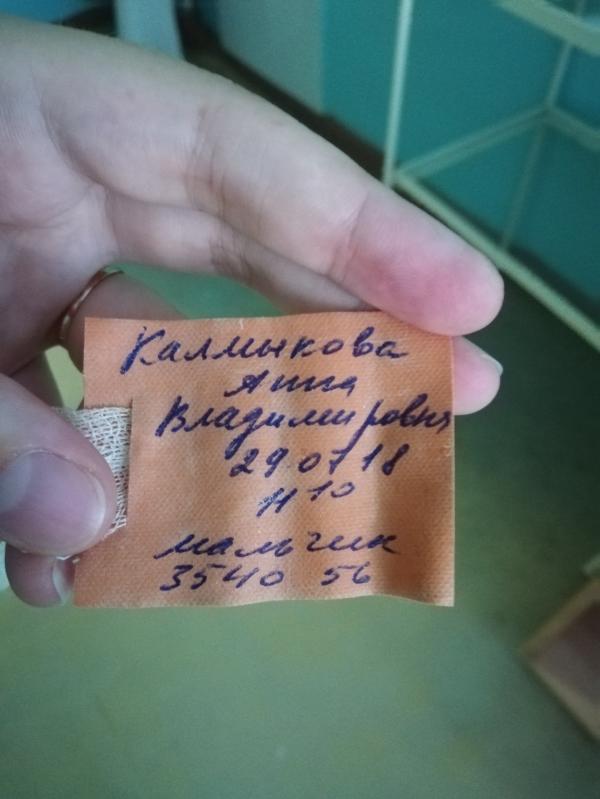 Калмыкова
Анна
Владимировна
29 07 18
11 10
мальчик
3540 56